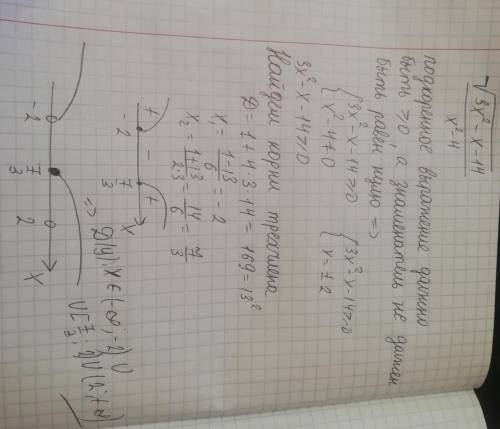 √(3x²-x-14)
x²-4
подкоренное выражение должно
быть ≥0, а знаменатель не должен
быть равен нулю =>
{3x²-x-14≥0 {3x²-x-14≥0
{x²-4≠0 {x≠±2
3x²-x-14≥0
Найдём корни трехчлена
D=1+4·3·14=169=13²
x₁=(1-13)/6=-2
x₂=(1+13)/(2·3)=14/6=7/3
+ - +
-2 7/3 x
-2 7/3 2 x
=> D(y):x∈(-∞;-2)∪
∪[7/3;2)∪(2;+∞)